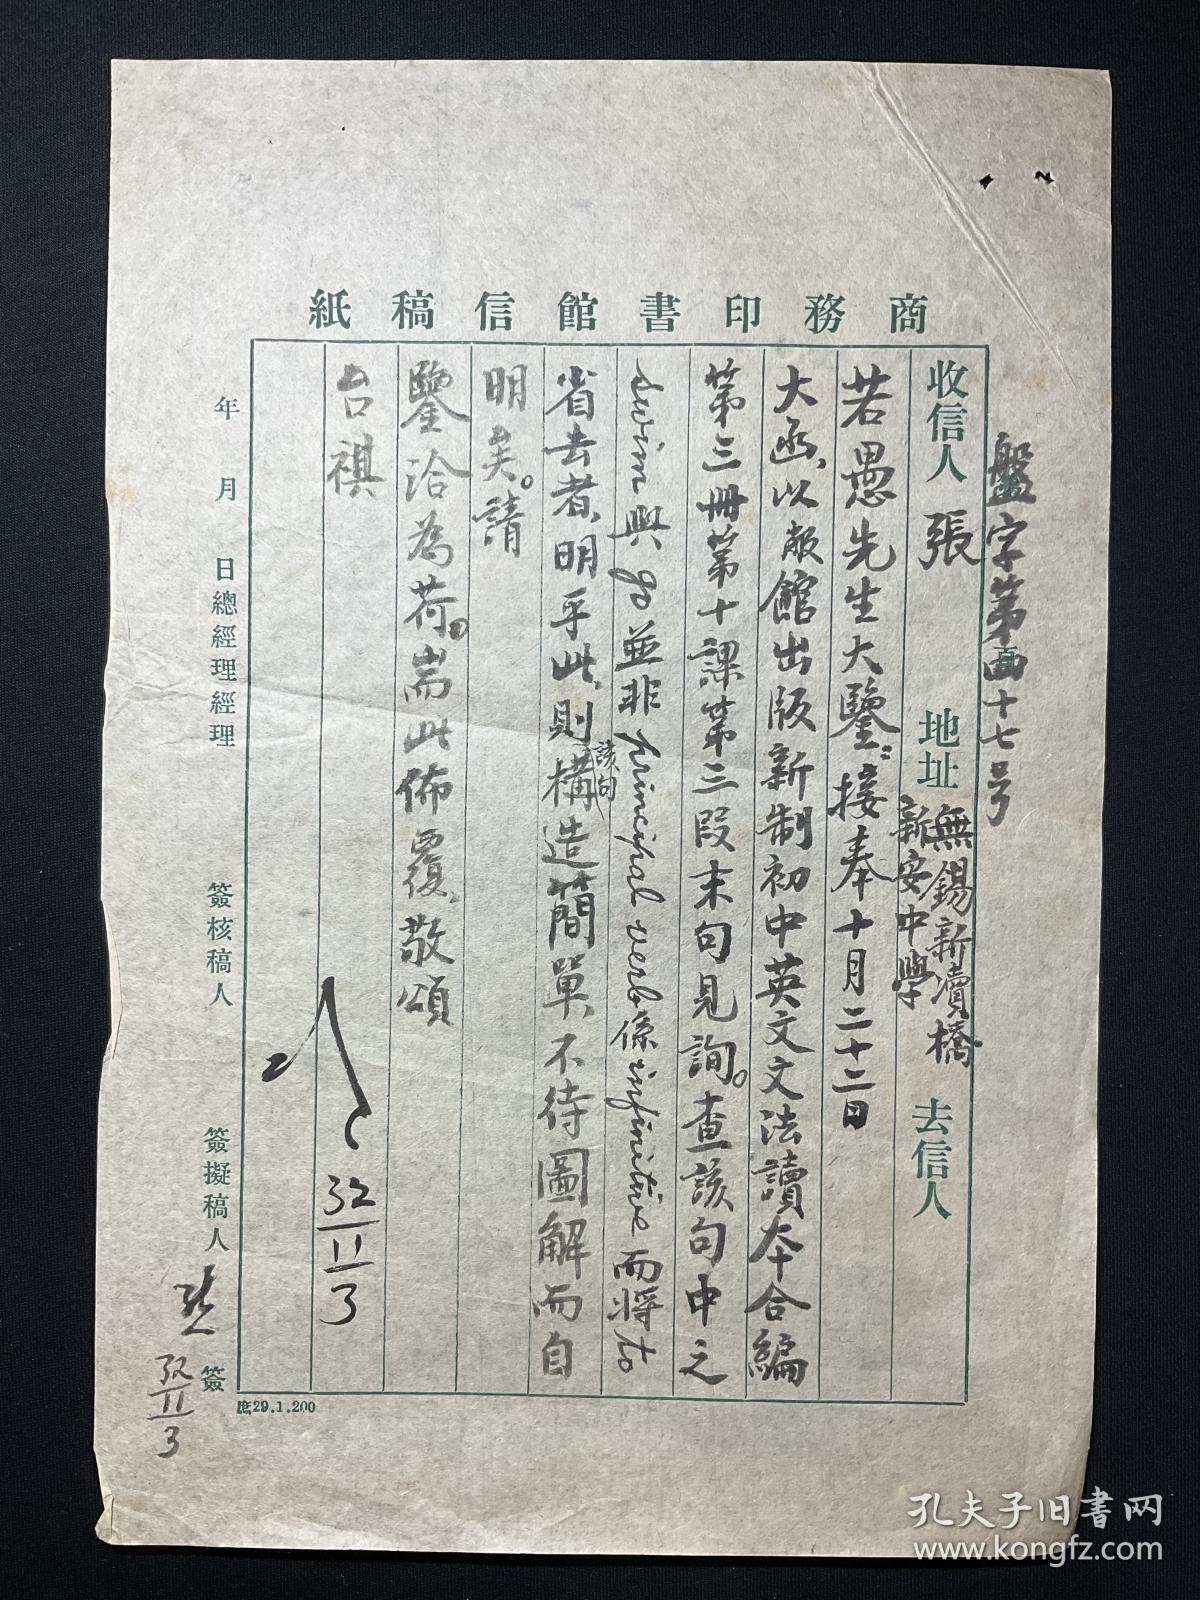 商務印書館信稿紙
盤字第四十七号
收信人 張 地址 無錫新瀆橋 去信人
新安中學
若愚先生大鑒：接奉十月二十二日
大函，以敝館出版新制初中英文文法讀本合編
第三冊第十課第三段末句見詢。查該句中之
swim 與 go 並非 principal verb 係 infinitive 而將 to
省去者，明乎此，則該句構造簡單不待圖解而自
明矣。請
鑒洽為荷。耑此佈覆，敬頌
台祺
32/11/3
年 月 日總經理經理 簽核稿人 簽擬稿人 簽
32/11/3
庶29.1.200
孔夫子旧书网
www.kongfz.com